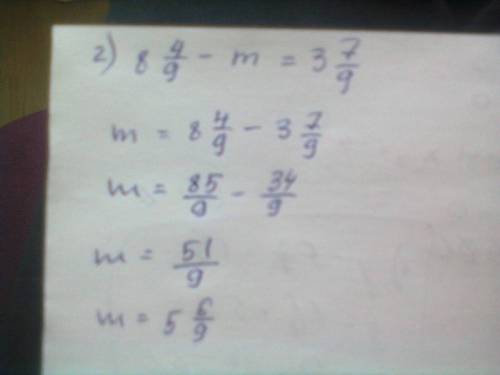 2) 8 4/9 - m = 3 7/9
m = 8 4/9 - 3 7/9
m = 85/9 - 34/9
m = 51/9
m = 5 6/9